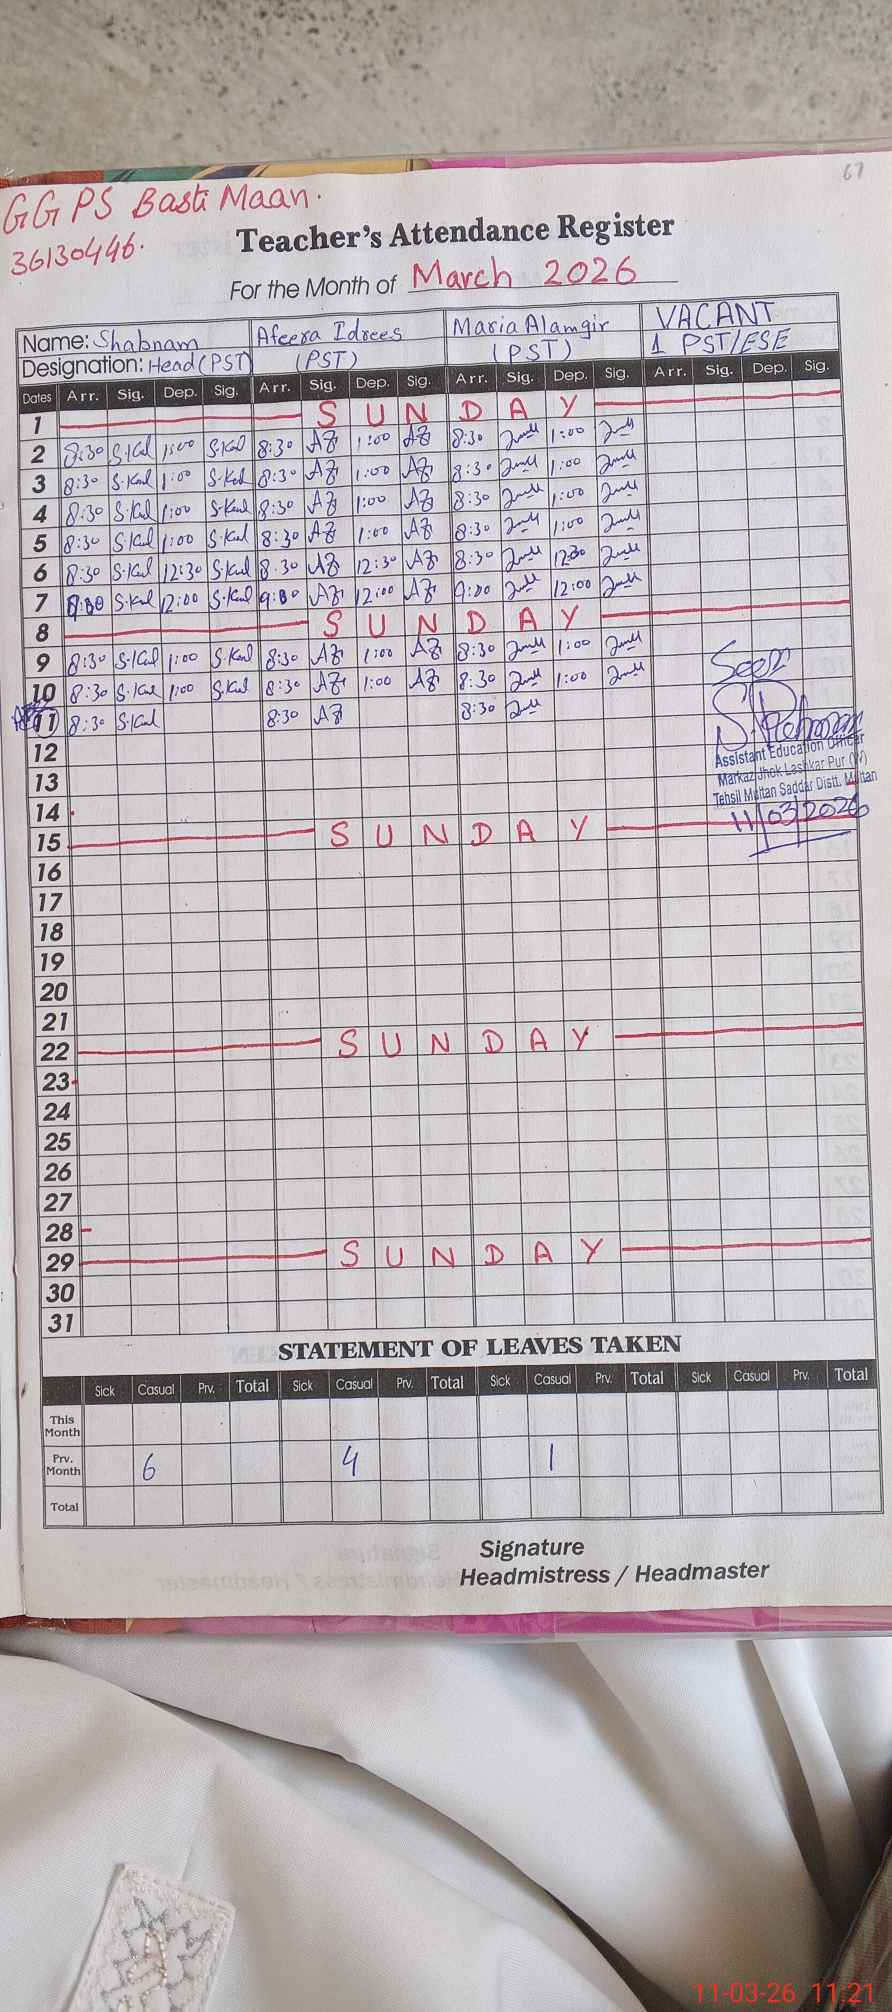 67
GGPS Basti Maan.
36130446.
Teacher's Attendance Register
For the Month of March 2026
Name: Shabnam Afeera Idrees Maria Alamgir VACANT
Designation: Head (PST) (PST) (PST) 1 PST/ESE
Dates Arr. Sig. Dep. Sig. Arr. Sig. Dep. Sig. Arr. Sig. Dep. Sig. Arr. Sig. Dep. Sig.
1 SUNDAY
2 8:30 1:00 8:30 AZ 1:00 AZ 8:30 1:00
3 8:30 1:00 8:30 AZ 1:00 AZ 8:30 1:00
4 8:30 1:00 8:30 AZ 1:00 AZ 8:30 1:00
5 8:30 1:00 8:30 AZ 1:00 AZ 8:30 1:00
6 8:30 12:30 8:30 AZ 12:30 AZ 8:30 12:30
7 12:00 AZ 12:00 AZ 9:00 12:00
8 SUNDAY
9 8:30 1:00 8:30 AZ 1:00 AZ 8:30 1:00
10 8:30 1:00 8:30 AZ 1:00 AZ 8:30 1:00
Seen
11 8:30 8:30 AZ 8:30
12
Assistant Education Officer
13
Markaz Jhok Lashkar Pur (W)
Tehsil Multan Saddar Distt. Multan
14
11/03/2026
15 SUNDAY
16
17
18
19
20
21
22 SUNDAY
23
24
25
26
27
28
29 SUNDAY
30
31
STATEMENT OF LEAVES TAKEN
Sick Casual Prv. Total Sick Casual Prv. Total Sick Casual Prv. Total Sick Casual Prv. Total
This Month
Prv. Month 6 4 1
Total
Signature
Headmistress / Headmaster
11-03-26 11:21